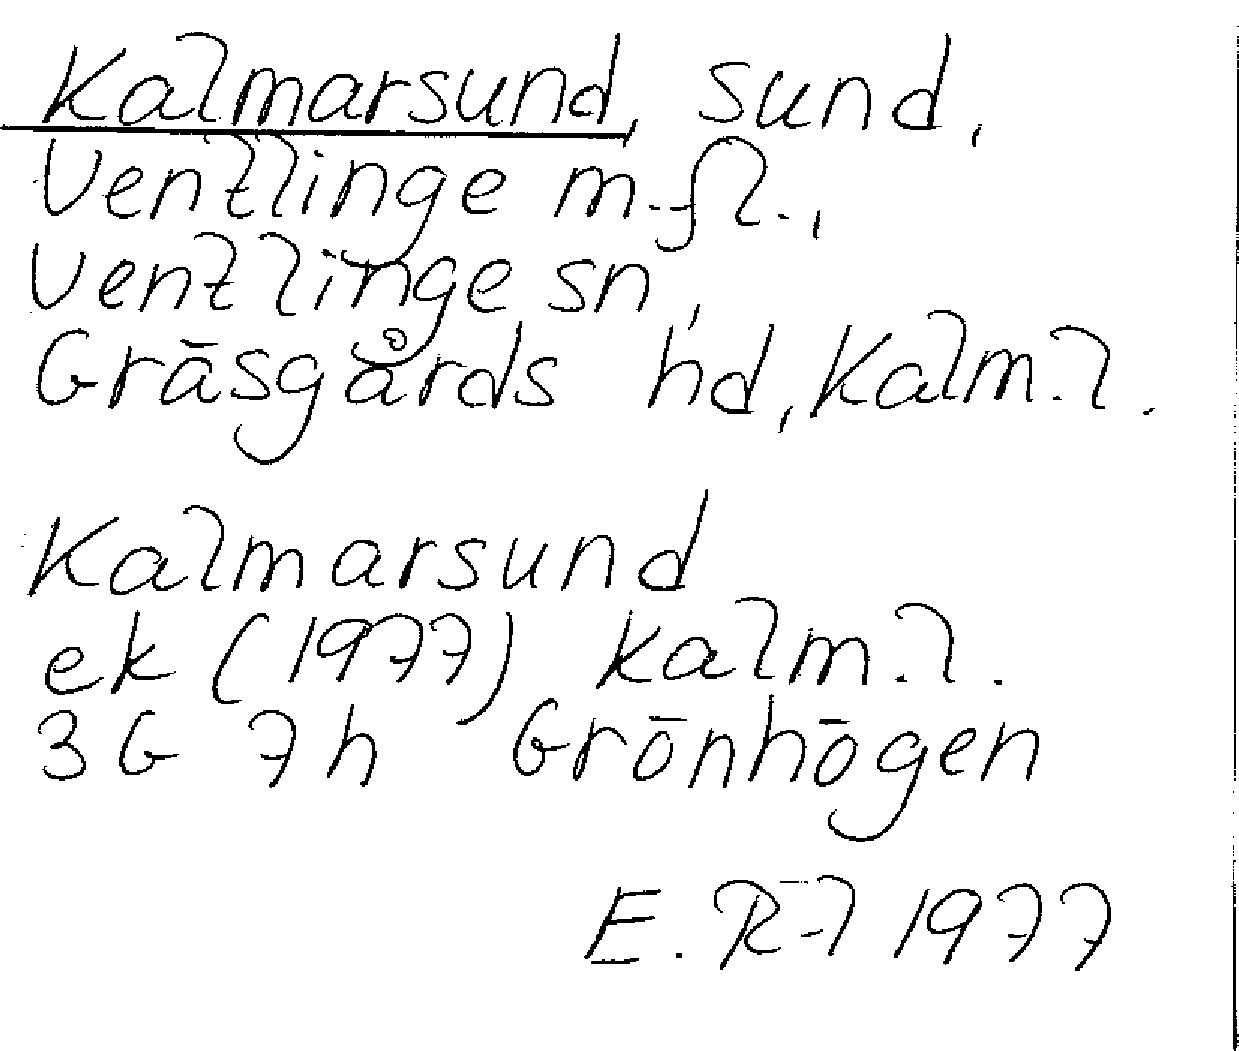 Kalmarsund, sund,
Ventlinge m.fl.,
Ventlinge sn,
Gräsgårds hd, Kalm.l.
Kalmarsund
ek (1977) Kalm.l.
3G 7h Grönhögen
E. 1977